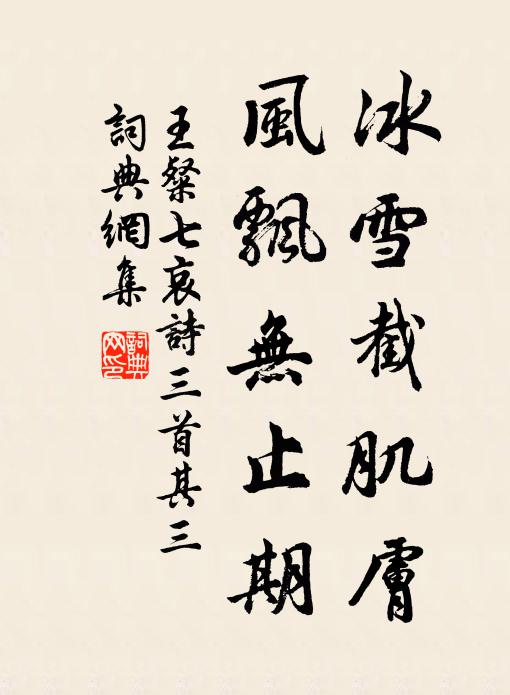 冰雪截肌膚
風飄無止期
王粲七哀詩三首其三
詞典網集
詞典网印